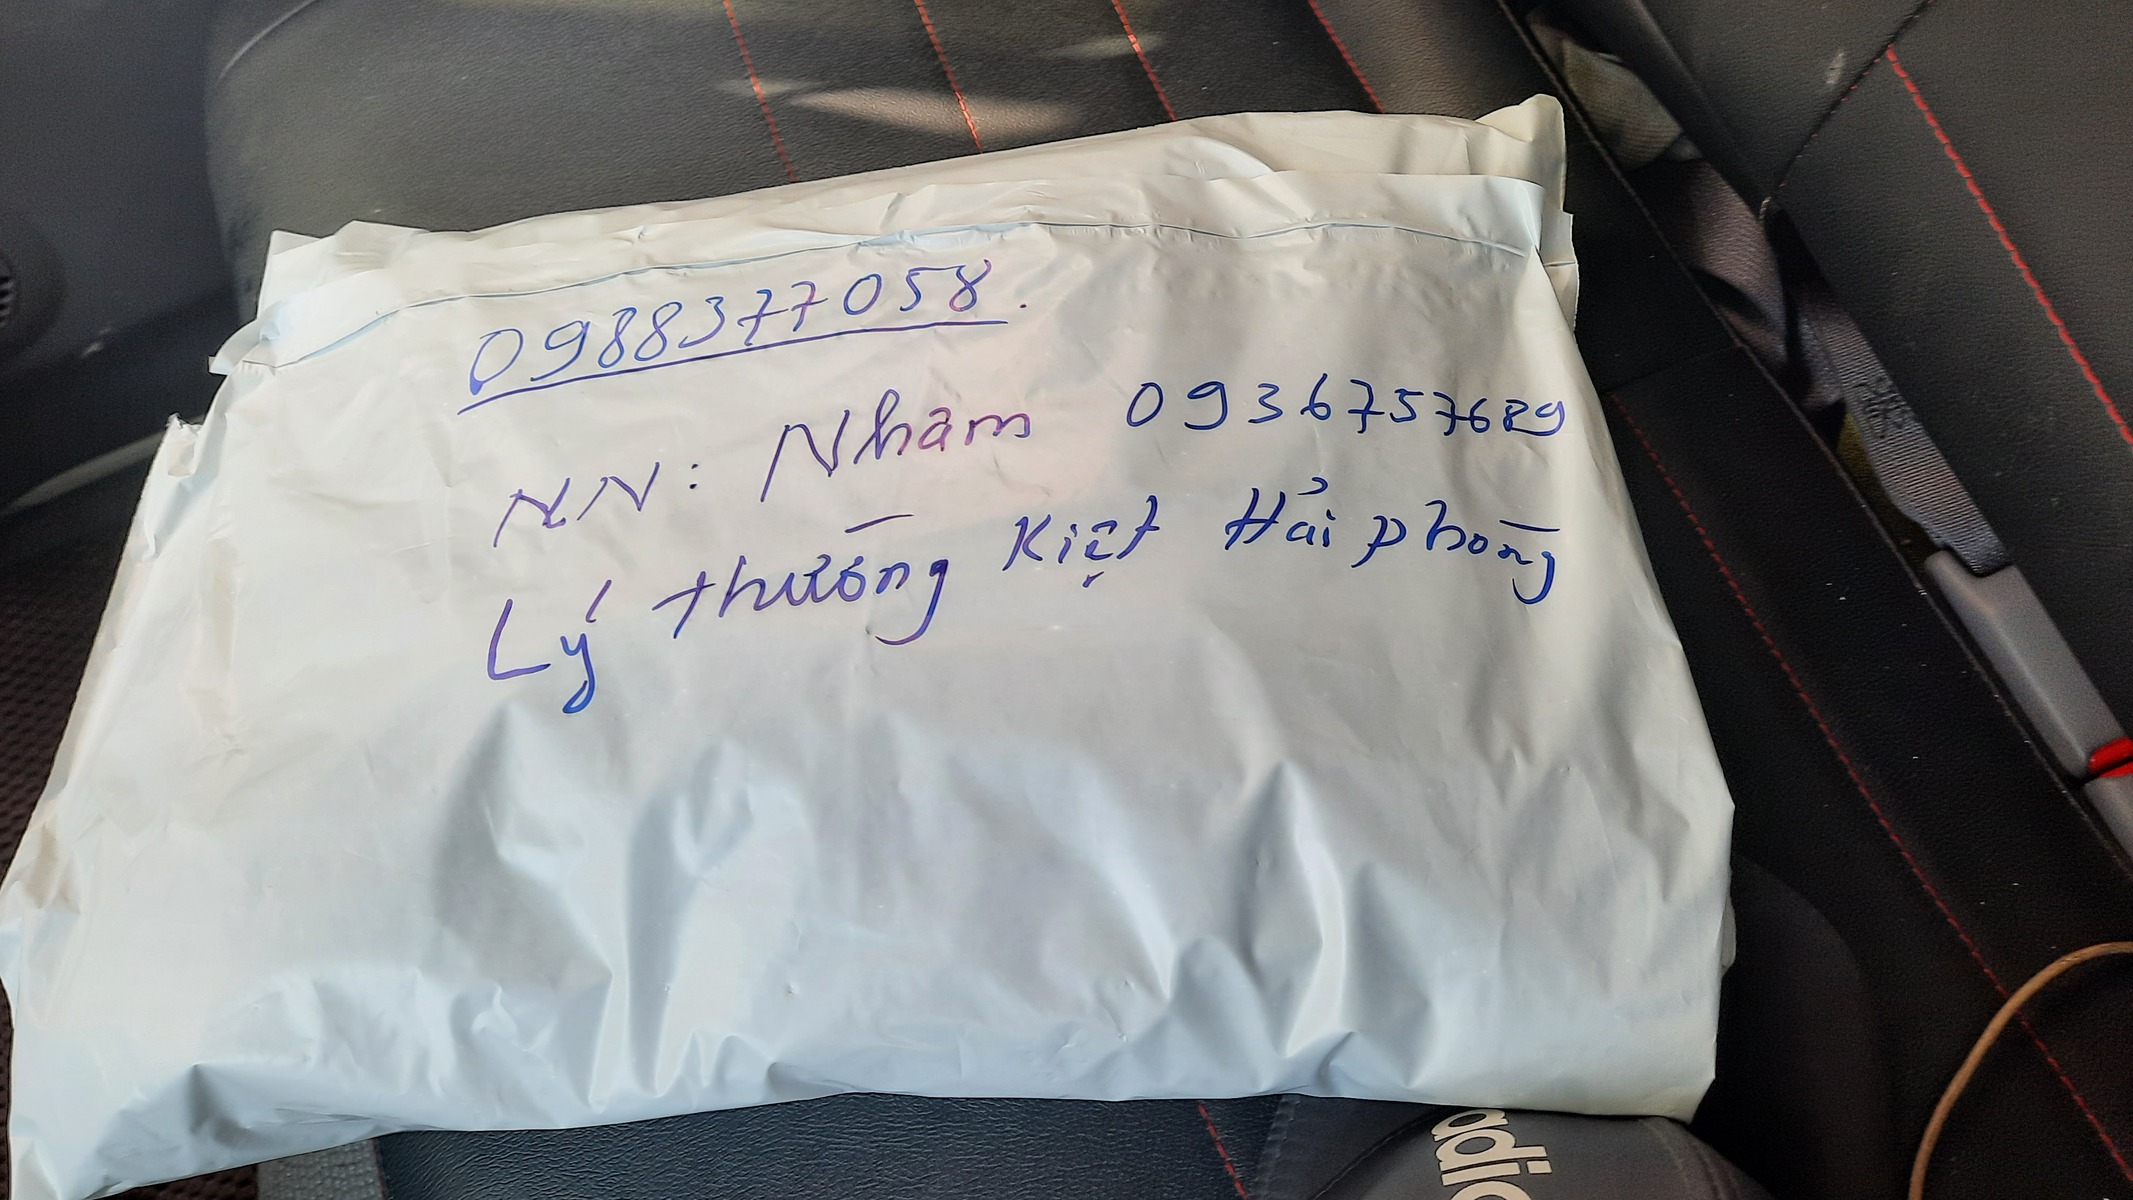 0988377058.
NN: Nhâm 0936757689
Lý thường Kiệt Hải phòng
adid